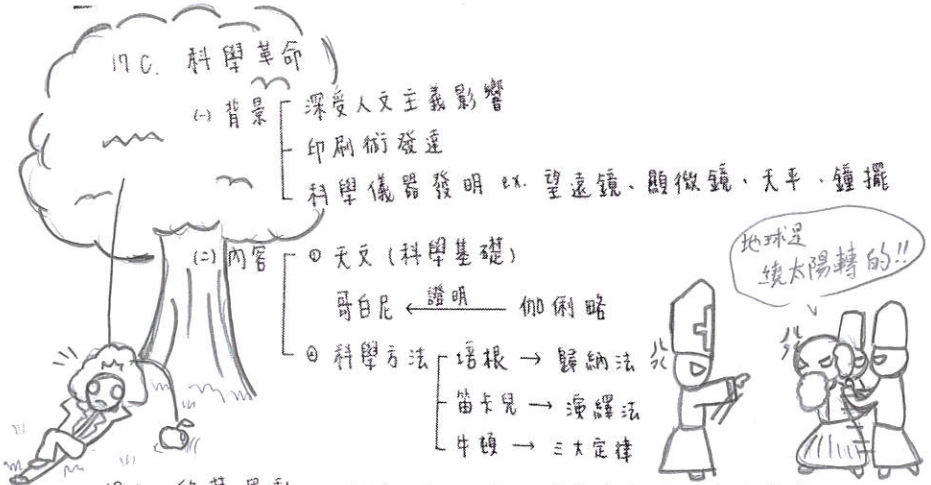 17 C. 科學革命
(一) 背景
深受人文主義影響
印刷術發達
科學儀器發明 ex. 望遠鏡、顯微鏡、天平、鐘擺
(二) 內容
① 天文 (科學基礎)
哥白尼 ← 證明 伽俐略
② 科學方法
培根 → 歸納法
笛卡兒 → 演繹法
牛頓 → 三大定律
地球是
繞太陽轉的!!